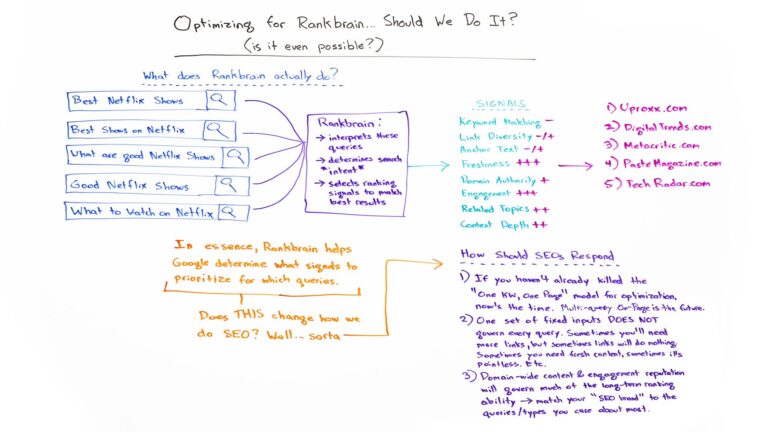 Optimizing for Rankbrain... Should We Do It?
(is it even possible?)
What does Rankbrain actually do?
Best Netflix Shows
Best Shows on Netflix
What are good Netflix Shows
Good Netflix Shows
What to Watch on Netflix
Rankbrain:
→ interprets these
queries
→ determines search
*intent*
→ selects ranking
signals to match
best results
SIGNALS
Keyword Matching -
Link Diversity -/+
Anchor Text -/+
Freshness +++
Domain Authority +
Engagement +++
Related Topics ++
Content Depth ++
1) Uproxx.com
2) DigitalTrends.com
3) Metacritic.com
4) PasteMagazine.com
5) TechRadar.com
In essence, Rankbrain helps
Google determine what signals to
prioritize for which queries.
Does THIS change how we
do SEO? Well... sorta
How Should SEOs Respond
1) If you haven't already killed the
"One KW, One Page" model for optimization,
now's the time. Multi-query On-Page is the future.
2) One set of fixed inputs DOES NOT
govern every query. Sometimes you'll need
more links, but sometimes links will do nothing.
Sometimes you need fresh content, sometimes its
pointless. Etc.
3) Domain-wide content & engagement reputation
will govern much of the long-term ranking
ability → match your "SEO brand" to the
queries/types you case about most.